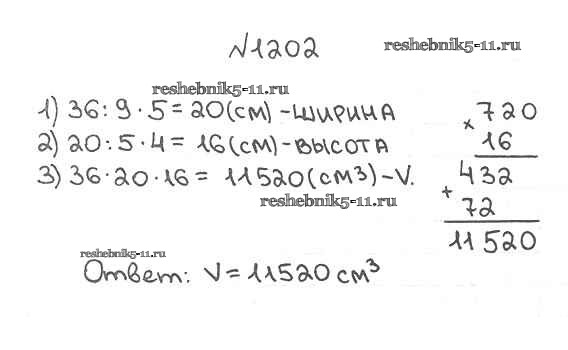 №1202
reshebnik5-11.ru
reshebnik5-11.ru
1) 36:9·5=20(см)-ширина
2) 20:5·4=16(см)-высота
3) 36·20·16=11520(см³)-V.
reshebnik5-11.ru
× 720
16
+ 432
72
11520
reshebnik5-11.ru
Ответ: V=11520 см³